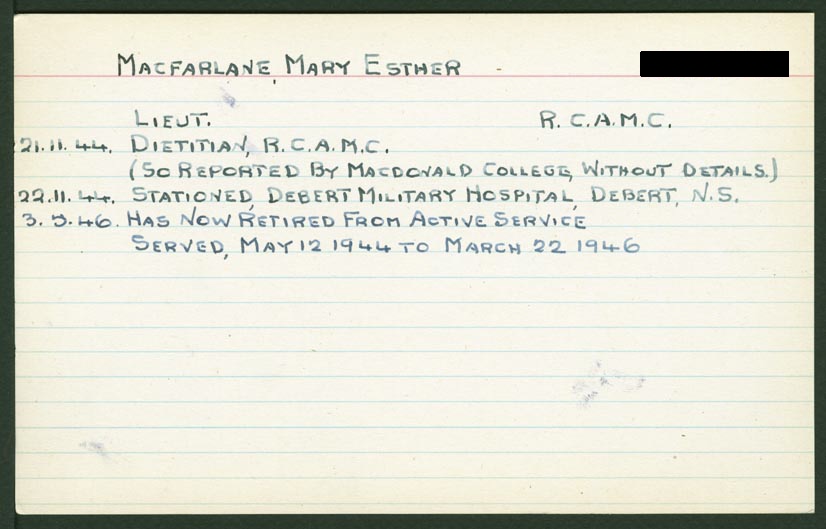 MACFARLANE, MARY ESTHER
LIEUT. R.C.A.M.C.
21.11.44. DIETITIAN, R.C.A.M.C.
(SO REPORTED BY MACDONALD COLLEGE, WITHOUT DETAILS.)
22.11.44. STATIONED, DEBERT MILITARY HOSPITAL, DEBERT, N.S.
3.5.46. HAS NOW RETIRED FROM ACTIVE SERVICE
SERVED, MAY 12 1944 TO MARCH 22 1946